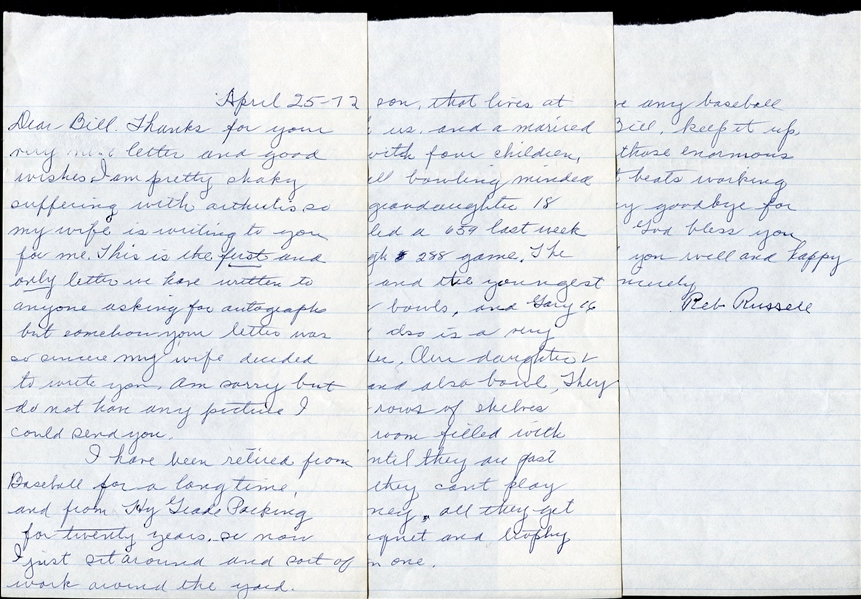 April 25-72
Dear Bill. Thanks for your
very nice letter and good
wishes. I am pretty shaky
suffering with arthritis so
my wife is writing to you
for me. This is the first and
only letter we have written to
anyone asking for autographs
but somehow your letter was
so sincere my wife decided
to write you. Am sorry but
do not have any picture I
could send you.
I have been retired from
Baseball for a long time,
and from Hy Grade Packing
for twenty years. so now
I just sit around and sort of
work around the yard.
son, that lives at
us, and a married
with four children,
ll bowling minded
grandaughter 18
led a 659 last week
gh 288 game. The
and the youngest
bowls, and Gary 16
also is a very
ler, Our daughter &
and also bowl, They
rows of shelves
room filled with
until they are past
they cant play
ney, all they get
quet and trophy
n one.
e any baseball
Bill, keep it up,
those enormous
t beats working
y goodbye for
God bless you
you well and happy
ncerely
Reb Russell